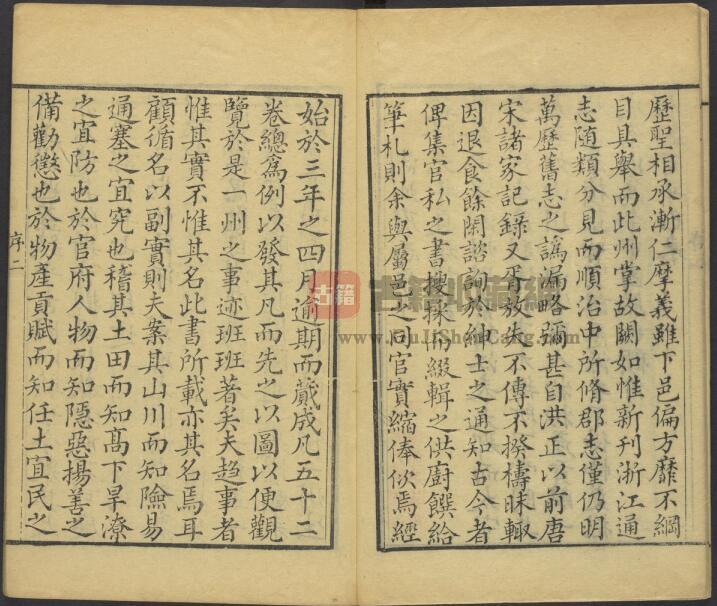 歷聖相承漸仁摩義雖下邑偏方靡不綱
目具舉而此州掌故闕如惟新刊浙江通
志隨類分見而順治中所脩郡志僅仍明
萬歷舊志之譌漏略彌甚自洪正以前唐
宋諸家記錄又胥放失不傳不揆檮昧輒
因退食餘閑諮詢於紳士之通知古今者
俾集官私之書搜採而綴輯之供廚饌給
筆札則余與屬邑之同官實縮俸佽焉經
始於三年之四月逾期而蕆成凡五十二
卷總為例以發其凡而先之以圖以便觀
覽於是一州之事迹班班著矣夫趋事者
惟其實不惟其名此書所載亦其名焉耳
顧循名以副實則夫案其山川而知險易
通塞之宜究也稽其土田而知髙下旱潦
之宜防也於官府人物而知隱惡揚善之
備勸懲也於物產貢賦而知任土宜民之
序二
古籍
古籍收藏網
GuJiShouCang.com